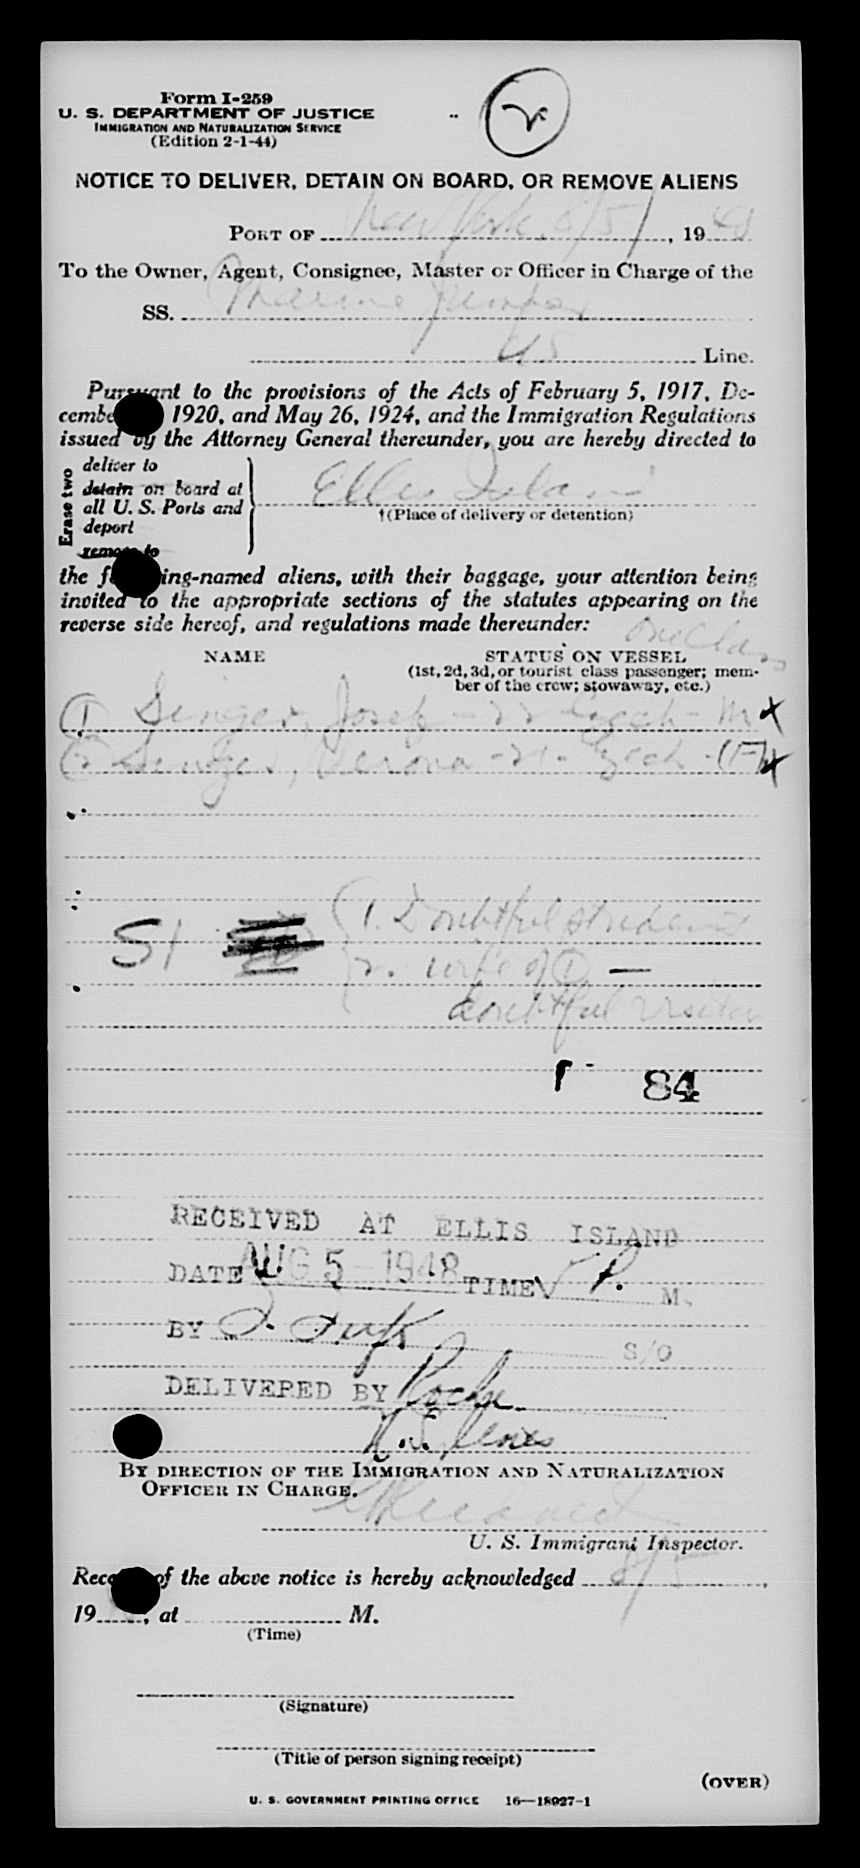 Form I-259
U. S. DEPARTMENT OF JUSTICE
IMMIGRATION AND NATURALIZATION SERVICE
(Edition 2-1-44)
2
NOTICE TO DELIVER, DETAIN ON BOARD, OR REMOVE ALIENS
PORT OF New York, 8/5/, 1948
To the Owner, Agent, Consignee, Master or Officer in Charge of the
SS. Marine Jumper
US Line.
Pursuant to the provisions of the Acts of February 5, 1917, De-
cembe 1920, and May 26, 1924, and the Immigration Regulations
issued by the Attorney General thereunder, you are hereby directed to
Erase two
deliver to
detain on board at
all U. S. Ports and
deport
remove to
Ellis Island
†(Place of delivery or detention)
the f ing-named aliens, with their baggage, your attention being
invited to the appropriate sections of the statutes appearing on the
reverse side hereof, and regulations made thereunder:
One Class
NAME STATUS ON VESSEL
(1st, 2d, 3d, or tourist class passenger; mem-
ber of the crew; stowaway, etc.)
(1) Singer, Josef - 22 Czech - M X
(2) Singer, - 21 - Czech - (F) X
SI
1. Doubtful student
2. wife of (1) —
doubtful visitor
84
RECEIVED AT ELLIS ISLAND
DATE AUG 5 - 1948 TIME P. M.
BY S/O
DELIVERED BY
BY DIRECTION OF THE IMMIGRATION AND NATURALIZATION
OFFICER IN CHARGE.
U. S. Immigrant Inspector.
Rece of the above notice is hereby acknowledged 8/5,
19 , at M.
(Time)
(Signature)
(Title of person signing receipt)
(OVER)
U. S. GOVERNMENT PRINTING OFFICE 16—18927-1